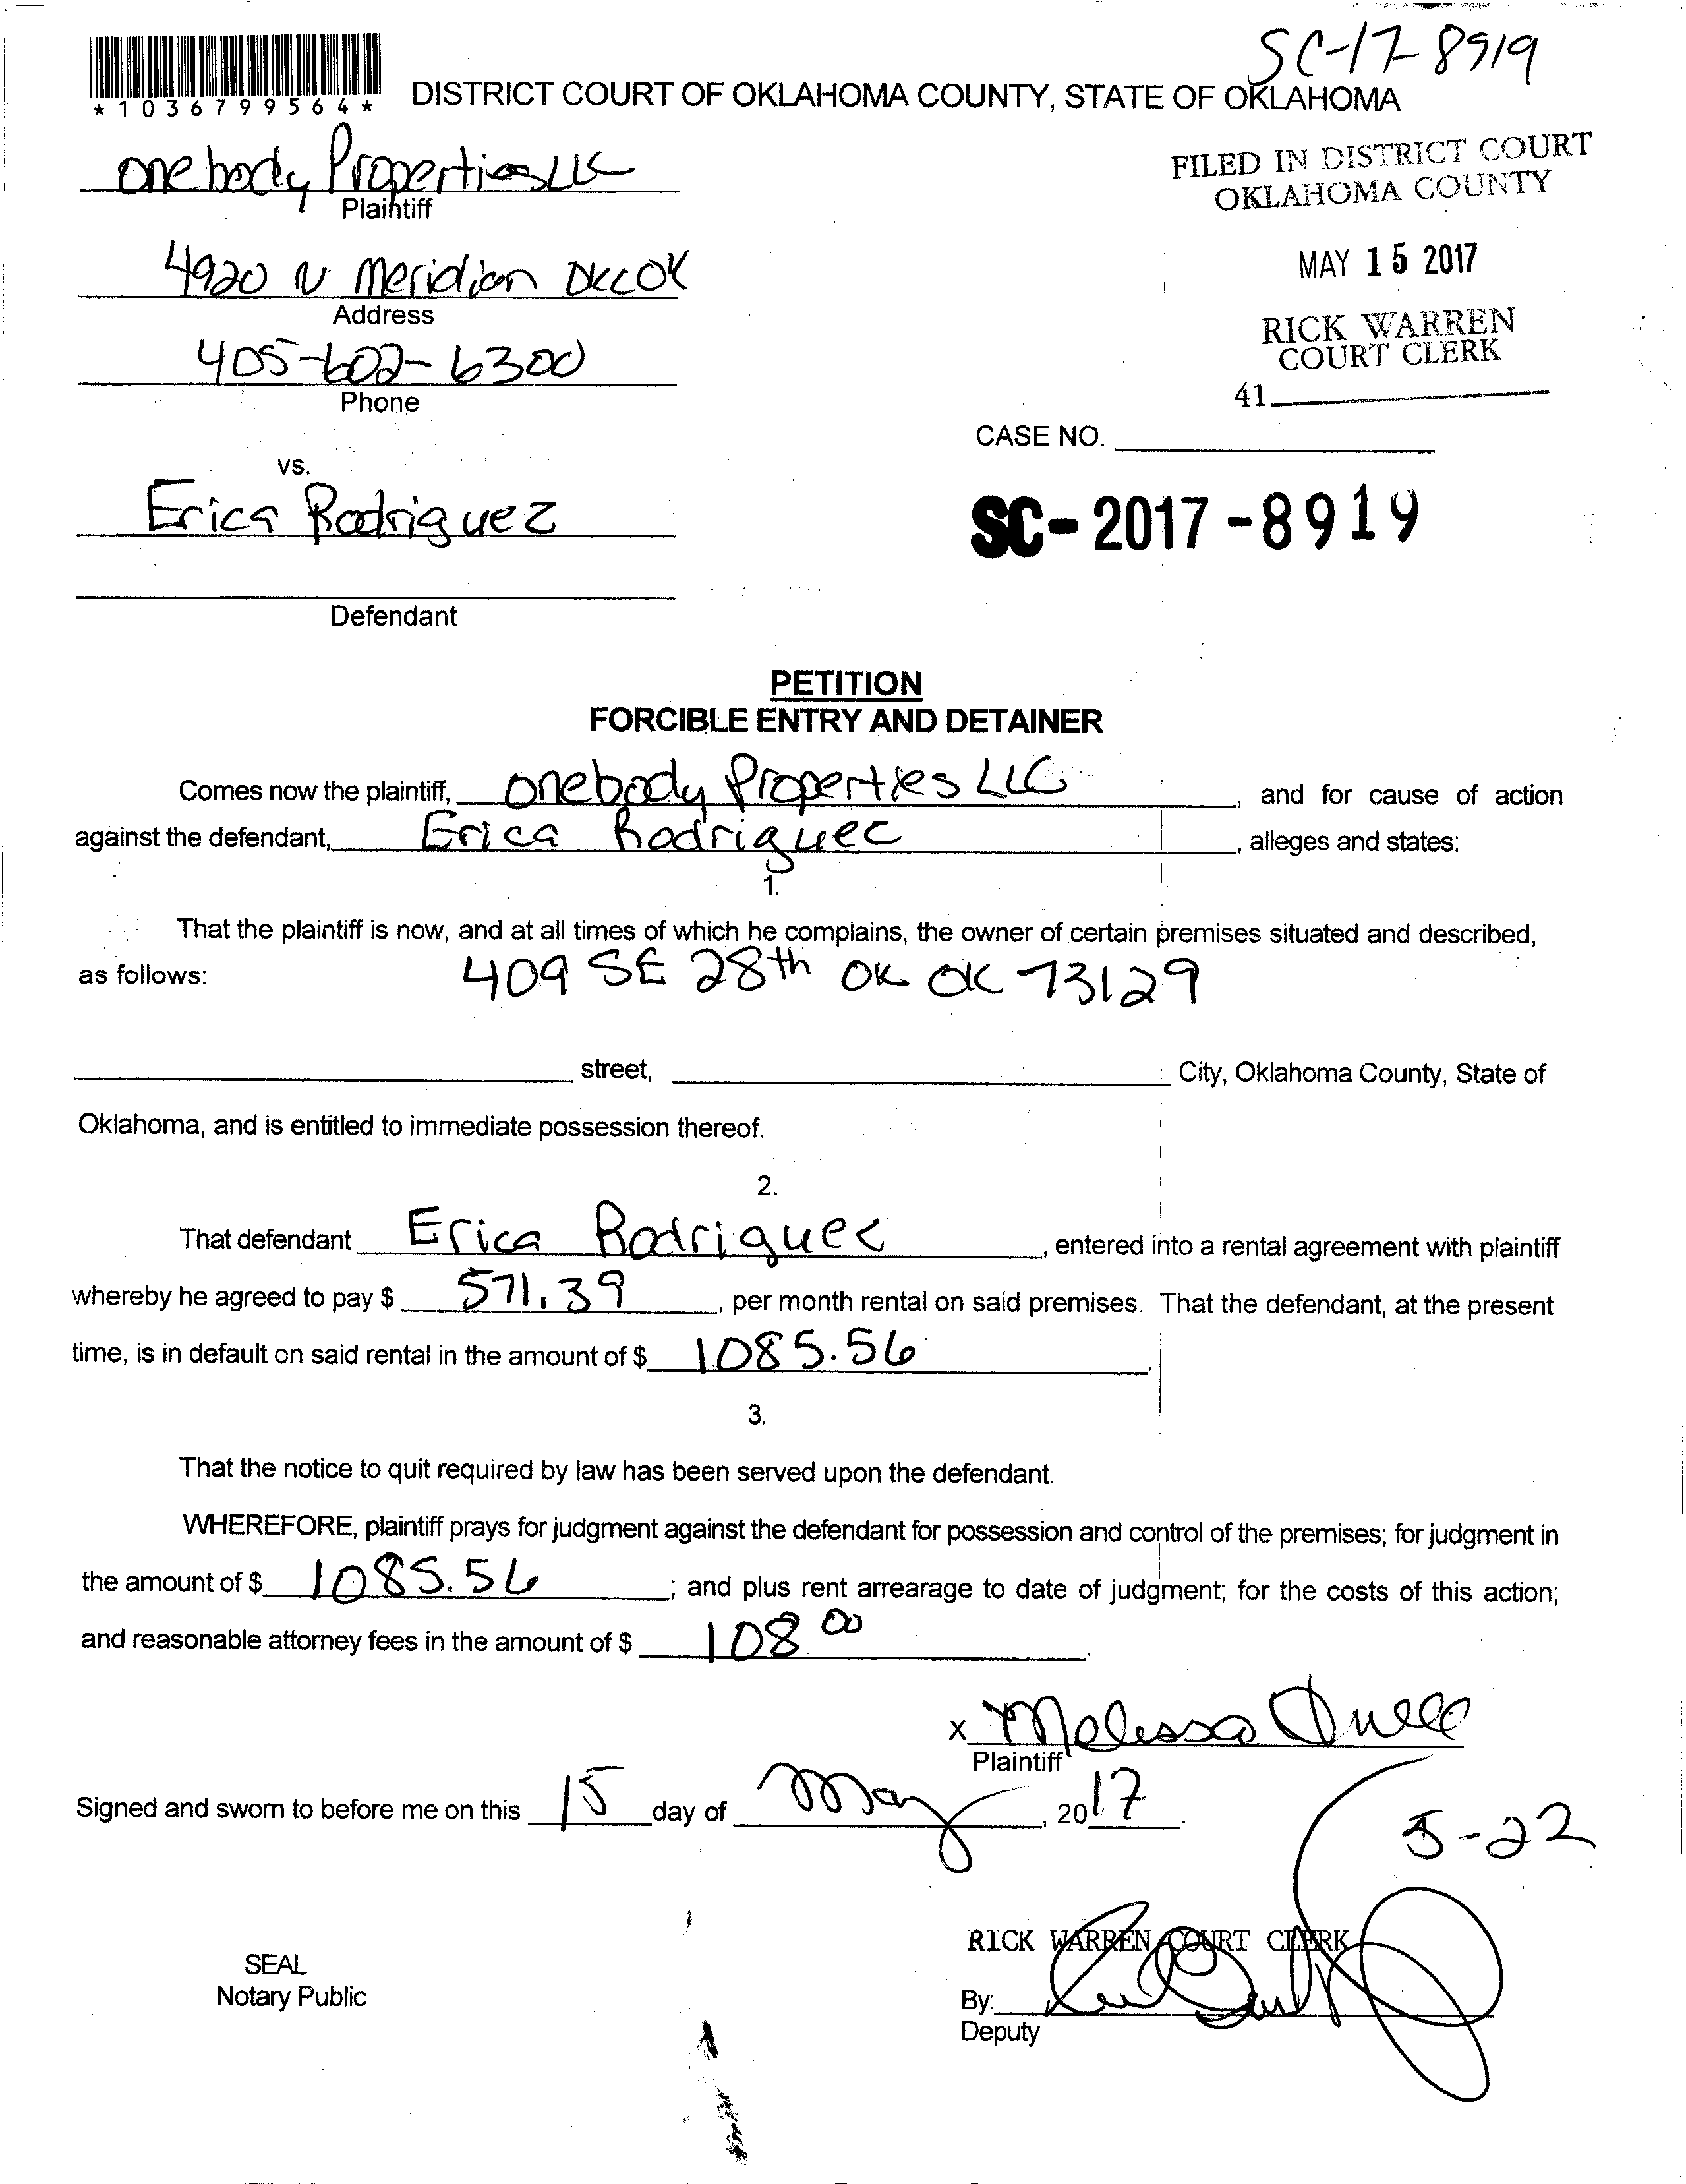 SC-17-8919
*1036799564*
DISTRICT COURT OF OKLAHOMA COUNTY, STATE OF OKLAHOMA
onebody Properties LLC
Plaintiff
FILED IN DISTRICT COURT
OKLAHOMA COUNTY
4920 N Meridian OKC OK
Address
MAY 15 2017
405-602-6300
Phone
RICK WARREN
COURT CLERK
41
CASE NO.
vs.
Erica Rodriguez
SC-2017-8919
Defendant
PETITION
FORCIBLE ENTRY AND DETAINER
Comes now the plaintiff, onebody Properties LLC, and for cause of action
against the defendant, Erica Rodriguez, alleges and states:
1.
That the plaintiff is now, and at all times of which he complains, the owner of certain premises situated and described,
as follows: 409 SE 28th OK OK 73129
street, City, Oklahoma County, State of
Oklahoma, and is entitled to immediate possession thereof.
2.
That defendant Erica Rodriguez, entered into a rental agreement with plaintiff
whereby he agreed to pay $ 571.39, per month rental on said premises. That the defendant, at the present
time, is in default on said rental in the amount of $ 1085.56.
3.
That the notice to quit required by law has been served upon the defendant.
WHEREFORE, plaintiff prays for judgment against the defendant for possession and control of the premises; for judgment in
the amount of $ 1085.56; and plus rent arrearage to date of judgment; for the costs of this action;
and reasonable attorney fees in the amount of $ 108 00.
x Melissa
Plaintiff
Signed and sworn to before me on this 15 day of May, 2017.
5-22
RICK WARREN COURT CLERK
SEAL
Notary Public
By:
Deputy